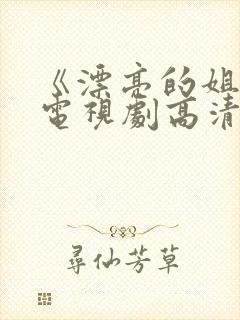 《漂亮的姐
電視劇高清
尋仙芳草